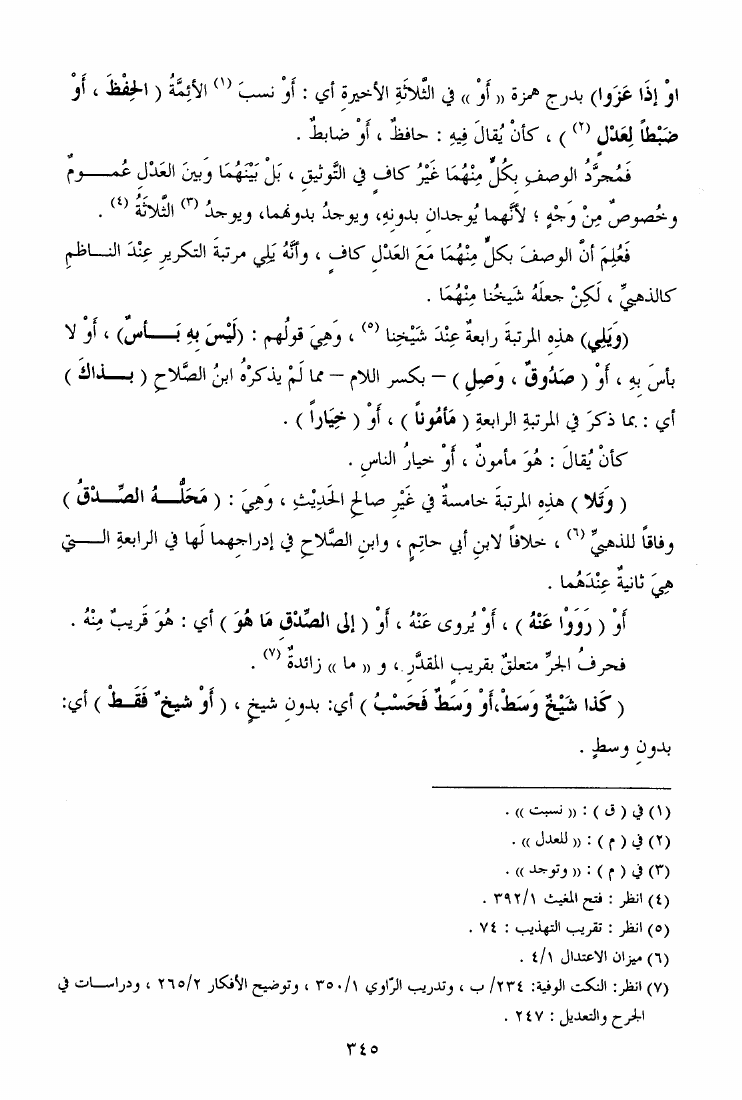 اوْ إذَا عَزَوا) بدرج همزة «أَوْ» في الثَّلاثَةِ الأخيرةِ أي : أوْ نسبَ (١) الأئِمَّةُ ( الحِفْظَ ، أَوْ
ضَبْطاً لِعَدْلٍ (٢) ) ، كأنْ يُقالَ فِيهِ : حافظٌ ، أوْ ضابطٌ .
فَمُجرَّدُ الوصفِ بِكُلٍّ مِنْهُمَا غَيْرُ كافٍ في التَّوثيقِ ، بَلْ بَيْنَهُمَا وَبينَ العَدْلِ عُمـــومٌ
وخصوصٌ مِنْ وَجْهٍ ؛ لأنَّهما يُوجدانِ بدونِهِ، ويوجدُ بدونهما، ويوجدُ (٣) الثلاثةُ (٤) .
فَعُلِمَ أنَّ الوصفَ بكلٍّ مِنْهُمَا مَعَ العَدْلِ كافٍ ، وأنَّهُ يَلِي مرتبةَ التكريرِ عِنْدَ النــاظمِ
كالذهبيِّ ، لَكِنْ جعلَهُ شَيخُنا مِنْهُمَا .
(وَيَلِي) هذِهِ المرتبةَ رابعةٌ عِنْدَ شَيْخِنا (٥) ، وَهِيَ قولُهم : (لَيْسَ بِهِ بَـــأسٌ) ، أوْ لا
بأسَ بِهِ ، أوْ ( صَدُوقٌ ، وَصِلِ ) – بكسر اللام – مما لَمْ يذكرْهُ ابنُ الصَّلاحِ ( بـــذاكَ )
أي : بما ذكرَ في المرتبةِ الرابعةِ ( مَأمُوناً ) ، أوْ ( خِيَاراً ) .
كأنْ يُقالَ : هُوَ مأمونٌ ، أوْ خيارُ الناسِ .
( وَتَلا ) هذِهِ المرتبةَ خامسةٌ في غَيْرِ صالحِ الحَدِيْثِ ، وَهِيَ : ( مَحَلُّــــهُ الصِّـــدْقُ )
وفاقاً للذهبيِّ (٦) ، خلافاً لابنِ أبي حاتِمٍ ، وابنِ الصَّلاحِ في إدراجِهما لَها في الرابعةِ الـــتي
هِيَ ثانيةٌ عِنْدَهُما .
أوْ ( رَوَوْا عَنْهُ ) ، أوْ يُروى عَنْهُ ، أوْ ( إلى الصِّدْقِ مَا هُوَ ) أي : هُوَ قَريبٌ مِنْهُ .
فحرفُ الجرِّ متعلقٌ بقريبِ المقدَّرِ ، و «ما» زائدةٌ (٧) .
( كَذا شَيْخٌ وَسَطْ،أوْ وَسَطٌ فَحَسْبُ ) أي: بدونِ شيخٍ ، ( أَوْ شيخٌ فَقَـطْ ) أي:
بدونِ وسطٍ .
(١) في ( ق ) : «نسبت» .
(٢) في ( م ) : «للعدل» .
(٣) في ( م ) : «وتوجد» .
(٤) انظر : فتح المغيث ٣٩٢/١ .
(٥) انظر : تقريب التهذيب : ٧٤ .
(٦) ميزان الاعتدال ٤/١ .
(٧) انظر: النكت الوفية: ٢٣٤/ ب ، وتدريب الرّاوي ٣٥٠/١ ، وتوضيح الأفكار ٢٦٥/٢ ، ودراســات في
الجرح والتعديل : ٢٤٧ .
٣٤٥